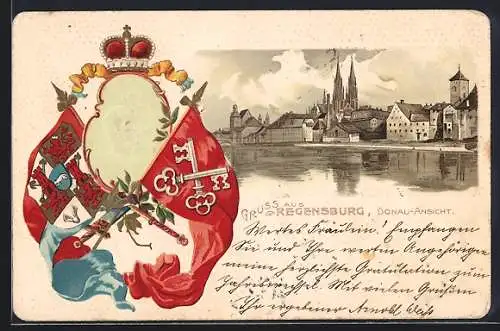 GRUSS AUS
REGENSBURG, DONAU-ANSICHT.
Wertes Fräulein! Empfangen
Sie und Ihre werten Angehörigen
meine herzlichste Gratulation zum
Jahreswechsel. Mit vielen Grüßen
Ihr ergebener Arnold Weiß